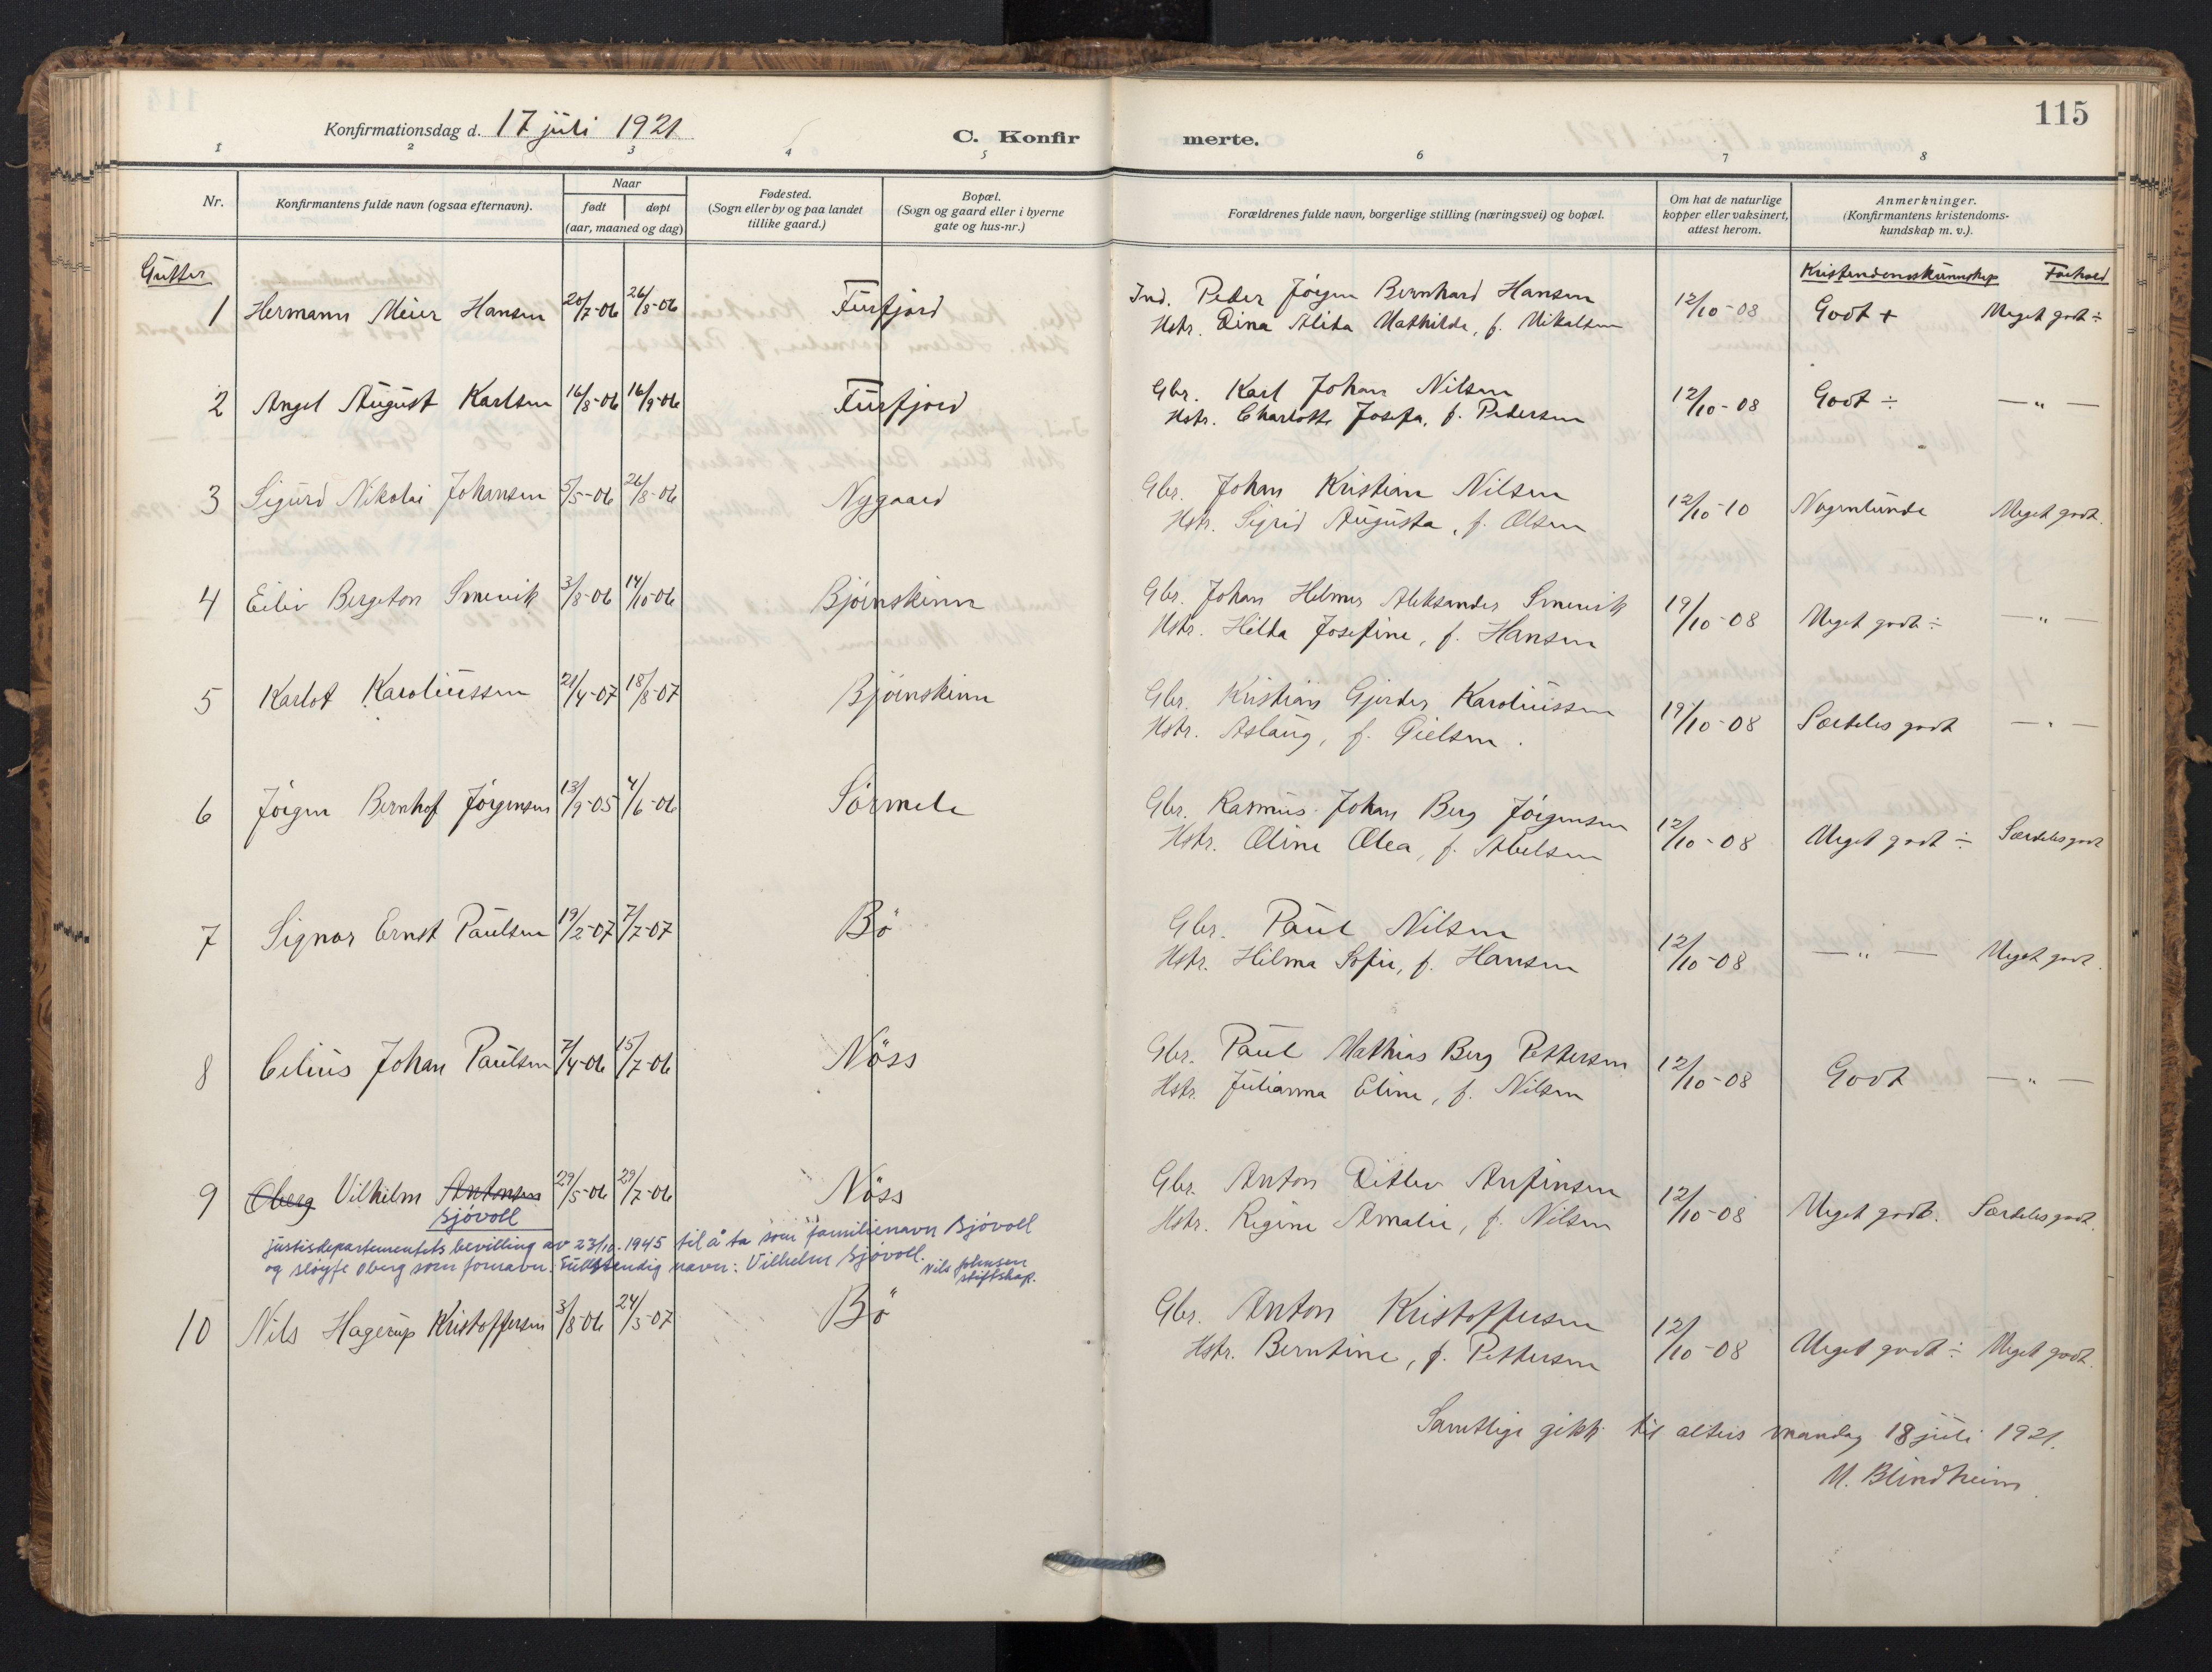 115
Konfirmationsdag d. 17 juli 1921
C. Konfirmerte.
1 2 3 4 5 6 7 8
Nr.
Konfirmantens fulde navn (ogsaa efternavn).
Naar
født døpt
(aar, maaned og dag)
Fødested.
(Sogn eller by og paa landet
tillike gaard.)
Bopæl.
(Sogn og gaard eller i byerne
gate og hus-nr.)
Forældrenes fulde navn, borgerlige stilling (næringsvei) og bopæl.
Om hat de naturlige
kopper eller vaksinert,
attest herom.
Anmerkninger.
(Konfirmantens kristendoms-
kundskap m. v.).
Gutter
Kristendomskunnskap Forhold
1 Hermann Meier Hansen 20/7-06 26/8-06 Fusfjord Ind. Peder Jörgen Bernhard Hansen 12/10-08 Godt + Meget godt ÷
Hstr. Dina Alida Mathilde, f. Mikalsen
2 Angel August Karlsen 16/8-06 16/9-06 Fusfjord Gbr. Karl Johan Nilsen 12/10-08 Godt ÷ — " —
Hstr. Charlotte Josefa, f. Pedersen
3 Sigurd Nikolai Johansen 5/5-06 26/8-06 Nygaard Gbr. Johan Kristian Nilsen 12/10-10 Nogenlunde Meget godt.
Hstr. Sigrid Augusta, f. Olsen
4 Eiliv Bergeton Smevik 3/8-06 14/10-06 Bjørnskinn Gbr. Johan Helmer Aleksander Smevik 19/10-08 Meget godt ÷ — " —
Hstr. Hilda Josefine, f. Hansen
5 Karlot Karoliussen 21/4-07 18/8-07 Bjørnskinn Gbr. Kristian Gjerder Karoliussen 19/10-08 Særdeles godt — " —
Hstr. Aslaug, f. Gielsen.
6 Jörgen Bernhof Jörgensen 13/9-05 4/6-06 Sörmela Gbr. Rasmus Johan Berg Jörgensen 12/10-08 Meget godt ÷ Særdeles godt
Hstr. Oline Olea, f. Abelsen
7 Signor Ernst Paulsen 19/2-07 7/7-07 Bö Gbr. Paul Nilsen 12/10-08 — " — Meget godt.
Hstr. Hilma Sofie, f. Hansen
8 Celius Johan Paulsen 7/4-06 15/7-06 Nöss Gbr. Paul Mathias Berg Pettersen 12/10-08 Godt — " —
Hstr. Julianna Eline, f. Nilsen
9 Oberg Vilhelm Antonsen 29/5-06 29/7-06 Nöss Gbr. Anton Ditlev Anfinsen 12/10-08 Meget godt. Særdeles godt.
Bjövoll
Hstr. Regine Amalie, f. Nilsen
justisdepartementets bevilling av 23/10.1945 til å ta som familienavn Bjövoll
og sløyfe Oberg som fornavn. Fullstendig navn: Vilhelm Bjövoll.
Nils Johnsen
stiftskap.
10 Nils Hagerup Kristoffersen 3/8-06 24/3-07 Bö Gbr. Anton Kristoffersen 12/10-08 Meget godt ÷ Meget godt.
Hstr. Berntine, f. Pettersen
Samtlige gikk til alters mandag 18 juli 1921.
M. Blindheim.